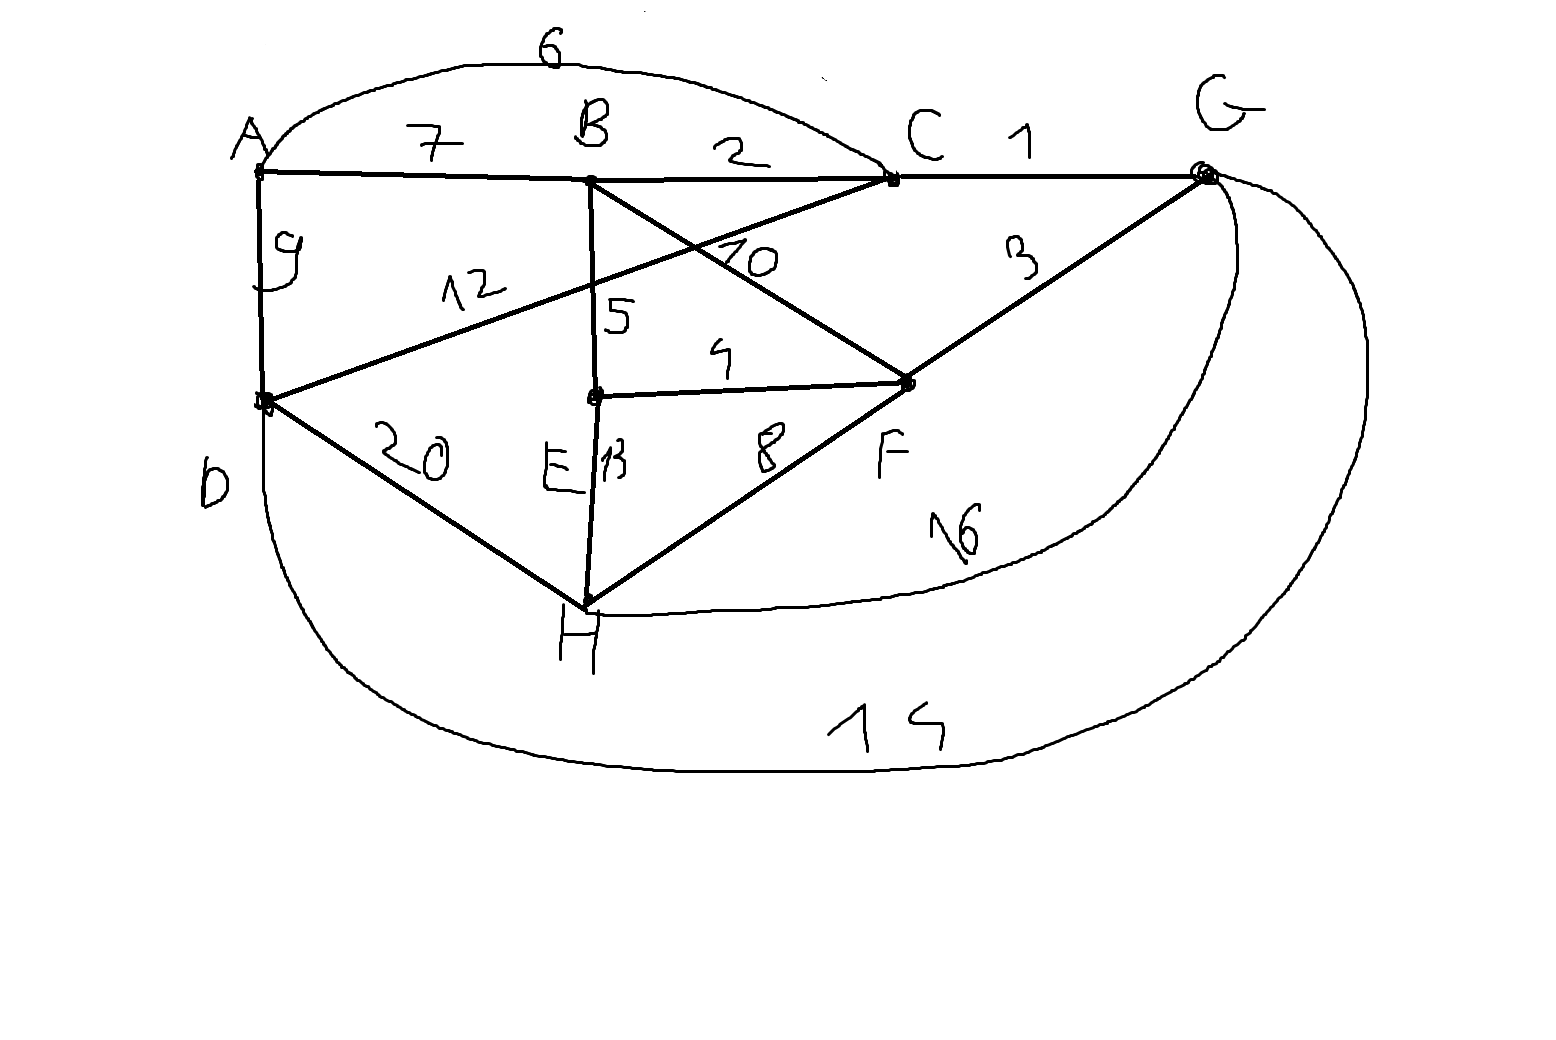 6
A 7 B 2 C 1 G
9 12 10 3
5
4
D 20 E 13 8 F
16
H
14